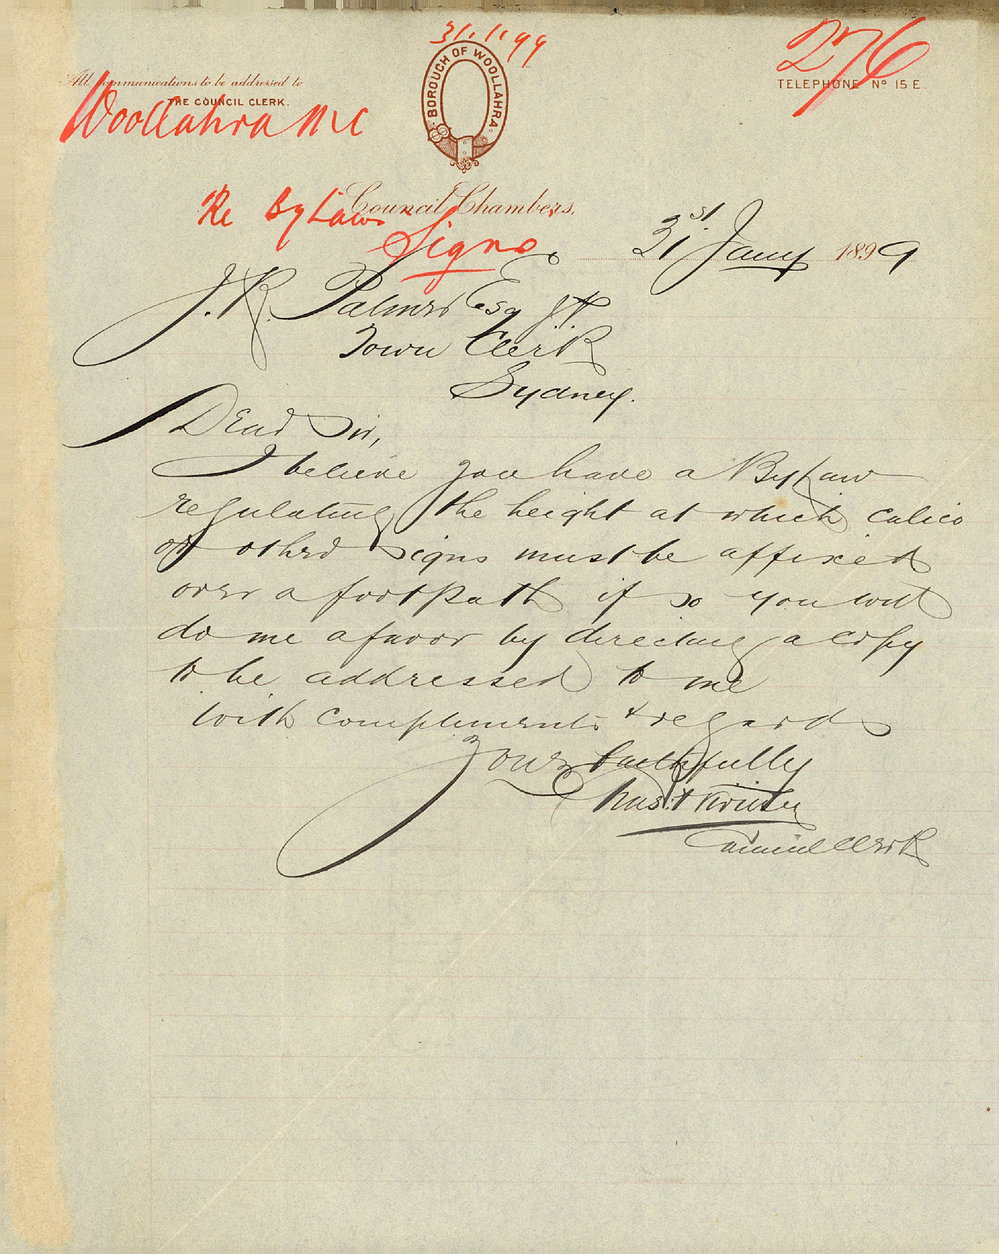 31.1.99
276
All communications to be addressed to
THE COUNCIL CLERK.
BOROUGH OF WOOLLAHRA
TELEPHONE Nº 15 E.
Woollahra MC
Council Chambers,
Re By Laws
Signs
31st Jany 1899
J. R. Palmer Esq JP
Town Clerk
Sydney.
Dear Sir,
I believe you have a By Law
regulating the height at which calico
or other signs must be affixed
over a footpath if so you will
do me a favor by directing a copy
to be addressed to me
With compliments & regards
Yours faithfully
Council Clerk